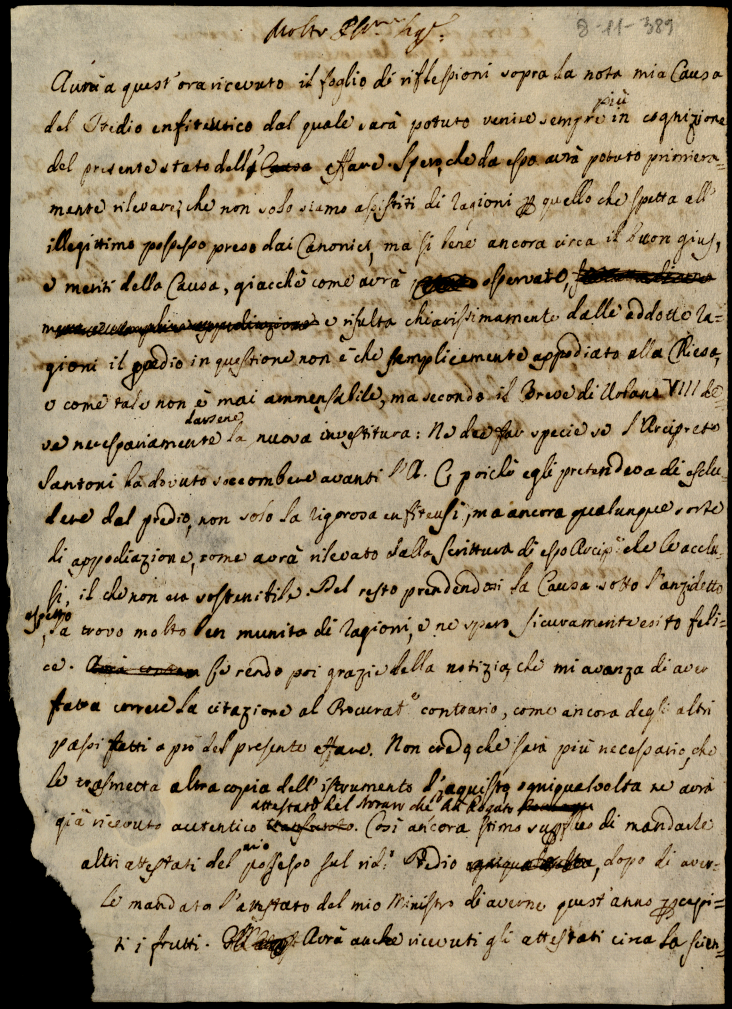 Molto Ill.mo Sig.r
8-11-389
Avrà a quest'ora ricevuto il foglio di riflessioni sopra la nota mia Causa
del Predio enfiteutico dal quale sarà potuto venire sempre più in cognizione
del presente stato dell' Causa affare. Spero, che da esso avrà potuto primiera-
mente rilevare, che non solo siamo assistiti di ragioni per quello che spetta all'
illegittimo possesso preso dai Canonici, ma si bene ancora circa il buon gius,
e meriti della Causa, giacchè come avrà osservato,
e risulta chiarissimamente dalle addotte ra-
gioni il predio in questione non è che semplicemente appodiato alla Chiesa,
e come tale non è mai ammensabile, ma secondo il Breve di Urbano VIII de-
ve necessariamente darsene la nuova investitura: Ne dee far specie se l'Arciprete
Santoni ha dovuto soccombere avanti l'A. C. poichè egli pretendeva di esclu-
dere dal predio, non solo la rigorosa enfiteusi, ma ancora qualunque sorte
di appodiazione, come avrà rilevato dalla Scrittura di esso Arcip.e che le acclu-
si, il che non era sostenibile. Del resto prendendosi la Causa sotto l'anzidetto
aspetto, la trovo molto ben munita di ragioni, e ne spero sicuramente esito feli-
ce. Le rendo poi grazie della notizia, che mi avanza di aver
fatta correre la citazione al Procurat.e contrario, come ancora degli altri
passi fatti a prò del presente affare. Non credo, che sarà più necessario, che
le trasmetta altra copia dell'istrumento d'aquisto, ogniqualvolta ne avrà
già ricevuto autentico attestato del Notaro Così ancora stimo superfluo di mandarle
altri attestati del mio possesso sul rid.o Predio, dopo di aver-
le mandata l'attestato del mio Ministro di averne quest'anno percepi-
ti i frutti. Avrà anche ricevuti gli attestati circa la scien-